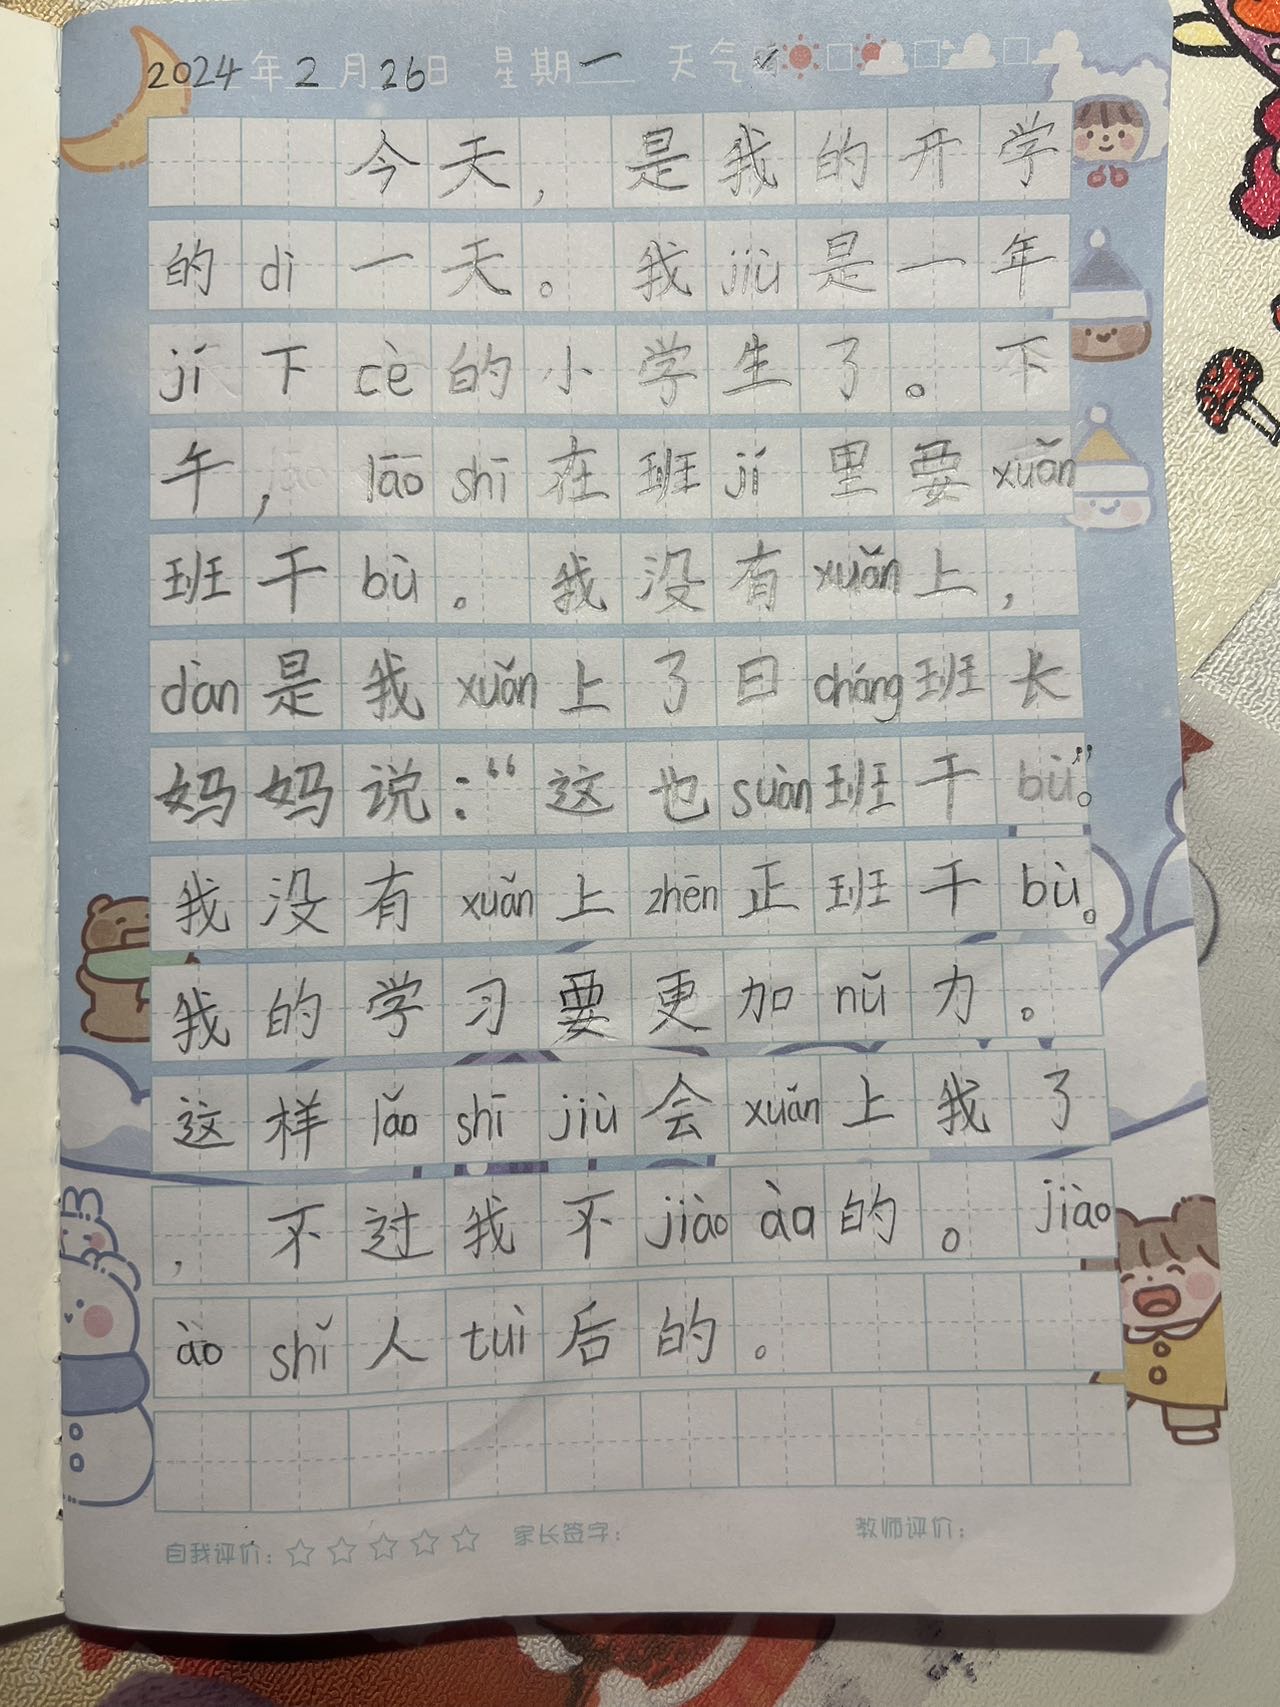 2024年2月26日 星期一 天气
今天，是我的开学
的dì一天。我jiù是一年
jí下cè的小学生了。下
午，lāo shī在班jí里要xuǎn
班干bù。我没有xuǎn上，
dàn是我xuǎn上了日cháng班长
妈妈说：“这也suàn班干bù”。
我没有xuǎn上zhēn正班干bù。
我的学习要更加nǔ力。
这样lǎo shī jiù会xuǎn上我了
，不过我不jiào àa的。jiào
ào shǐ人tuì后的。
自我评价：☆☆☆☆☆ 家长签字： 教师评价：